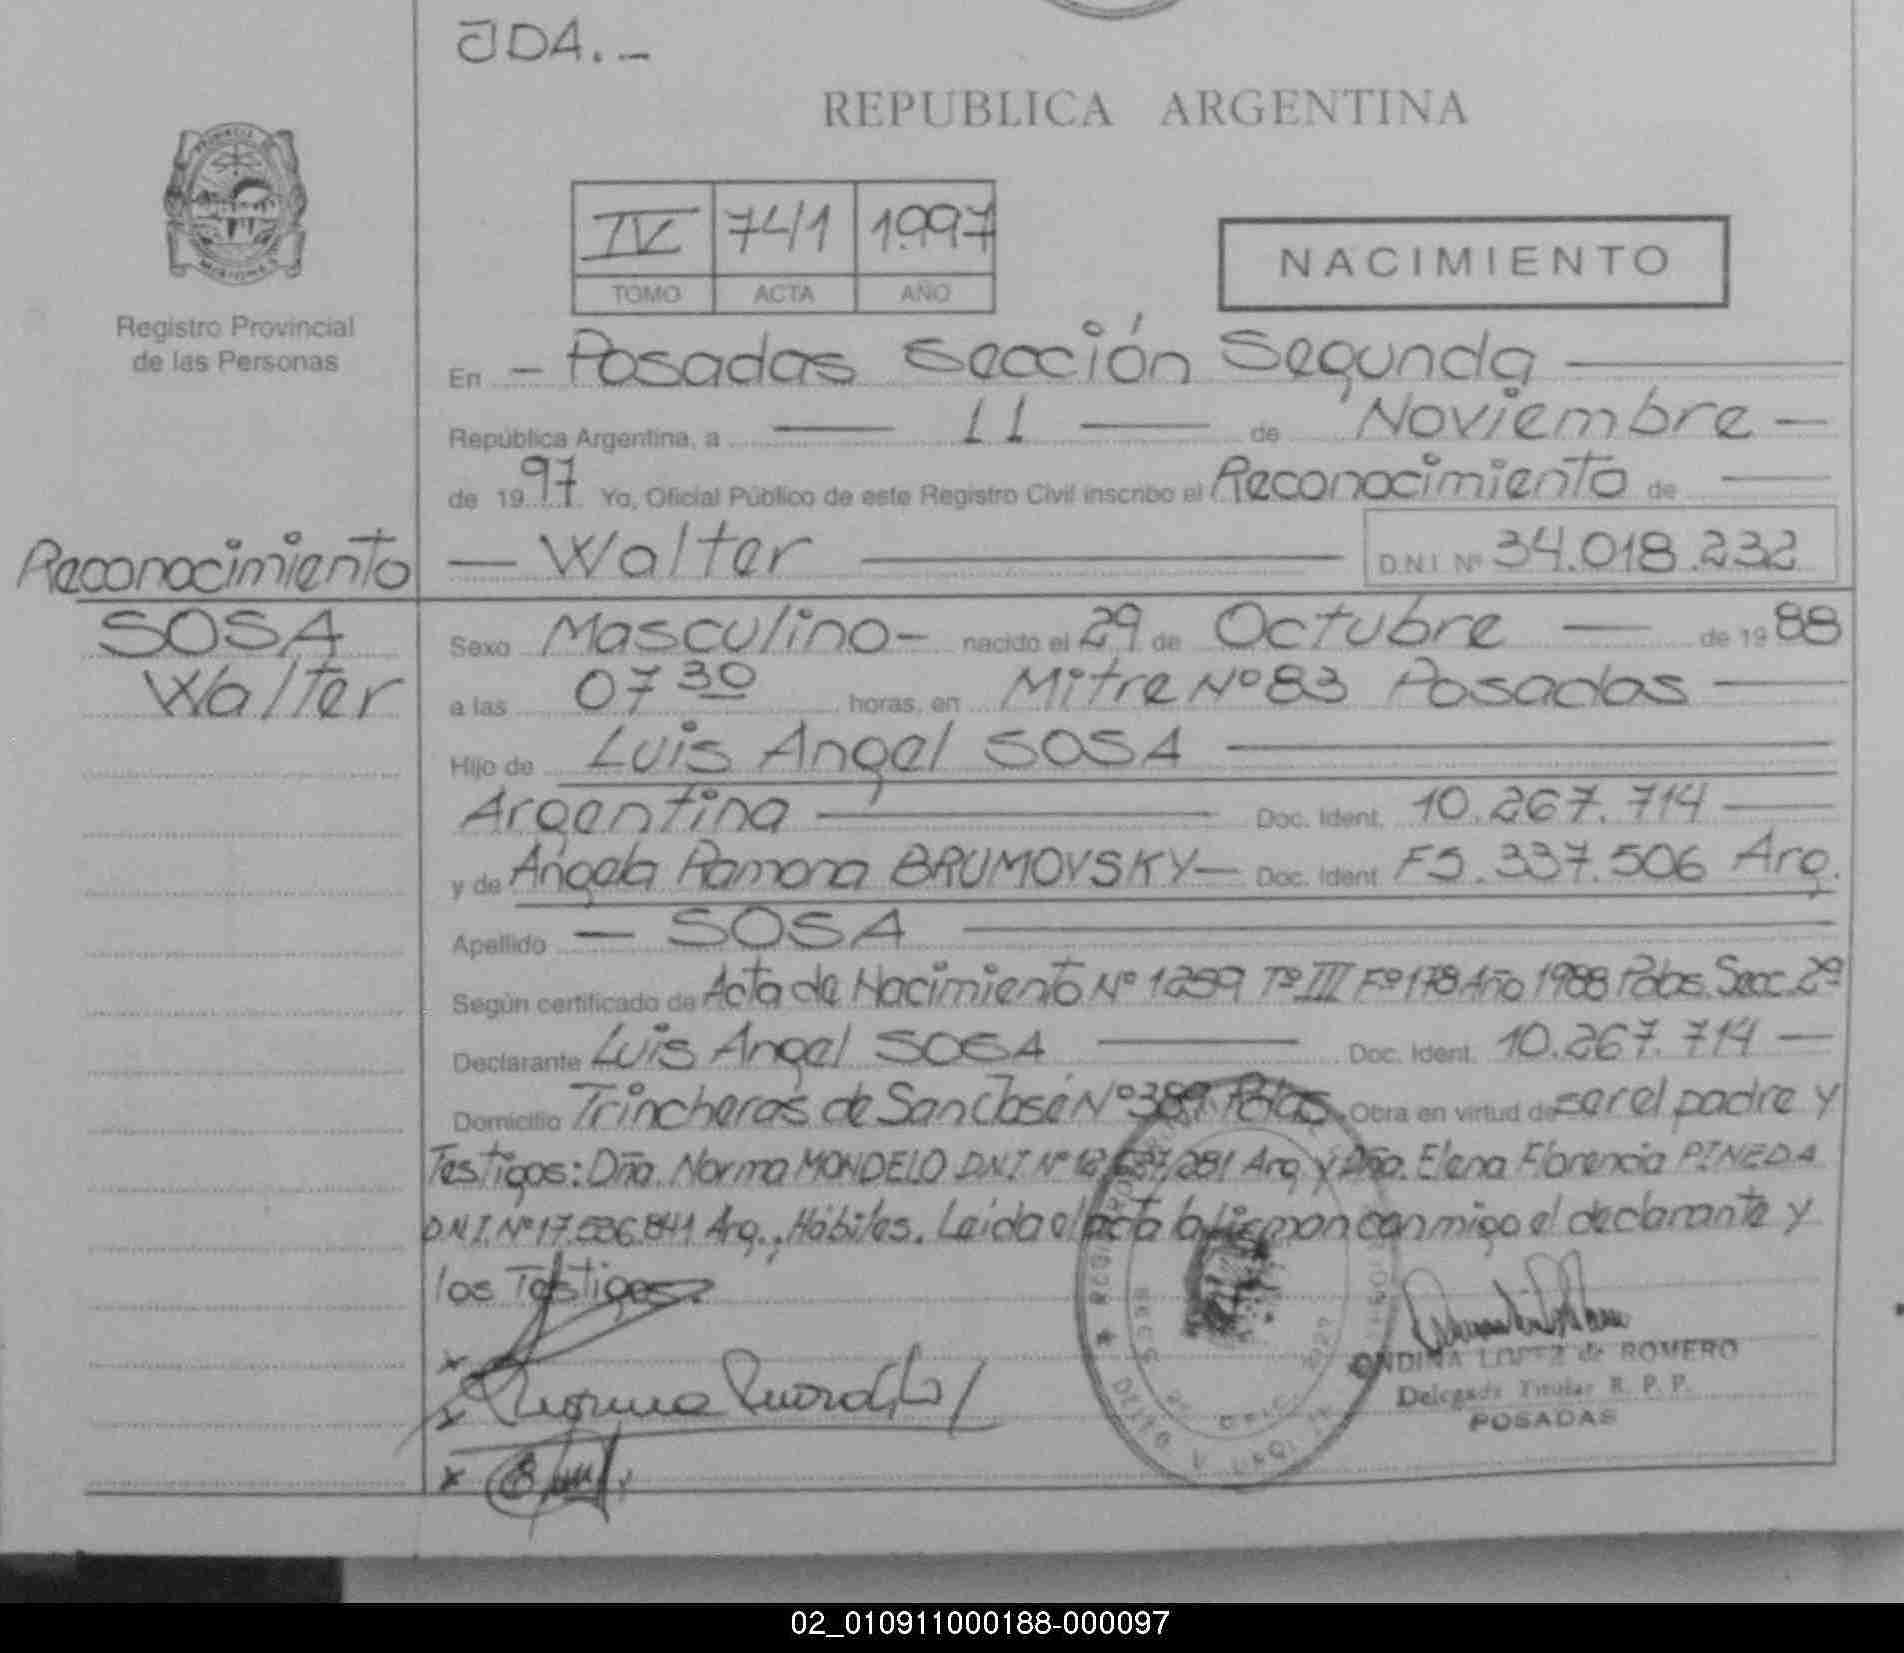 JDA.-
REPUBLICA ARGENTINA
IV 74/1 1997
TOMO ACTA AÑO
NACIMIENTO
Registro Provincial
de las Personas
En - Posadas Sección Segunda
República Argentina, a 11 de Noviembre -
de 1997 Yo, Oficial Público de este Registro Civil inscribo el Reconocimiento de
Walter D.N.I Nº 34.018.232
Reconocimiento
SOSA
Walter
Sexo Masculino - nacido el 29 de Octubre de 1988
a las 07 30 horas, en Mitre Nº 83 Posadas
Hijo de Luis Angel SOSA
Argentina Doc. Ident. 10.267.714
y de Angela Ramona BRUMOVSKY - Doc. Ident F5.337.506 Arg.
Apellido - SOSA
Según certificado de Acta de Nacimiento Nº 1259 Tº III Fº 178 Año 1988 Pdas. Secc. 2ª
Declarante Luis Angel SOSA Doc. Ident. 10.267.714 -
Domicilio Trincheras de San José Nº 389 Pdas. Obra en virtud de ser el padre y
Testigos: Dña. Norma MONDELO D.N.I. Nº Arg. y Dña. Elena Florencia PINEDA
D.N.I. Nº 17.536.841 Arg., Hábiles. Leída el acta la firman conmigo el declarante y
los Testigos.
ONDINA LOPEZ de ROMERO
Delegada Titular R. P. P.
POSADAS
02_010911000188-000097